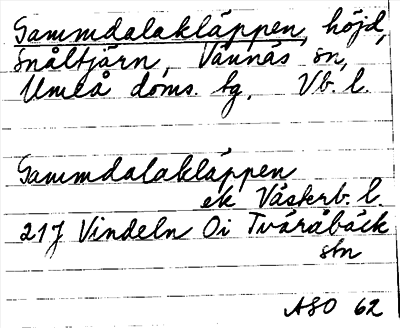 Gammdalakläppen, höjd,
Snåltjärn, Vännäs sn,
Umeå doms. tg, Vb. l.
Gammdalakläppen
ek Västerb. l.
21J Vindeln Oi Tväråbäck
stn
ASO 62